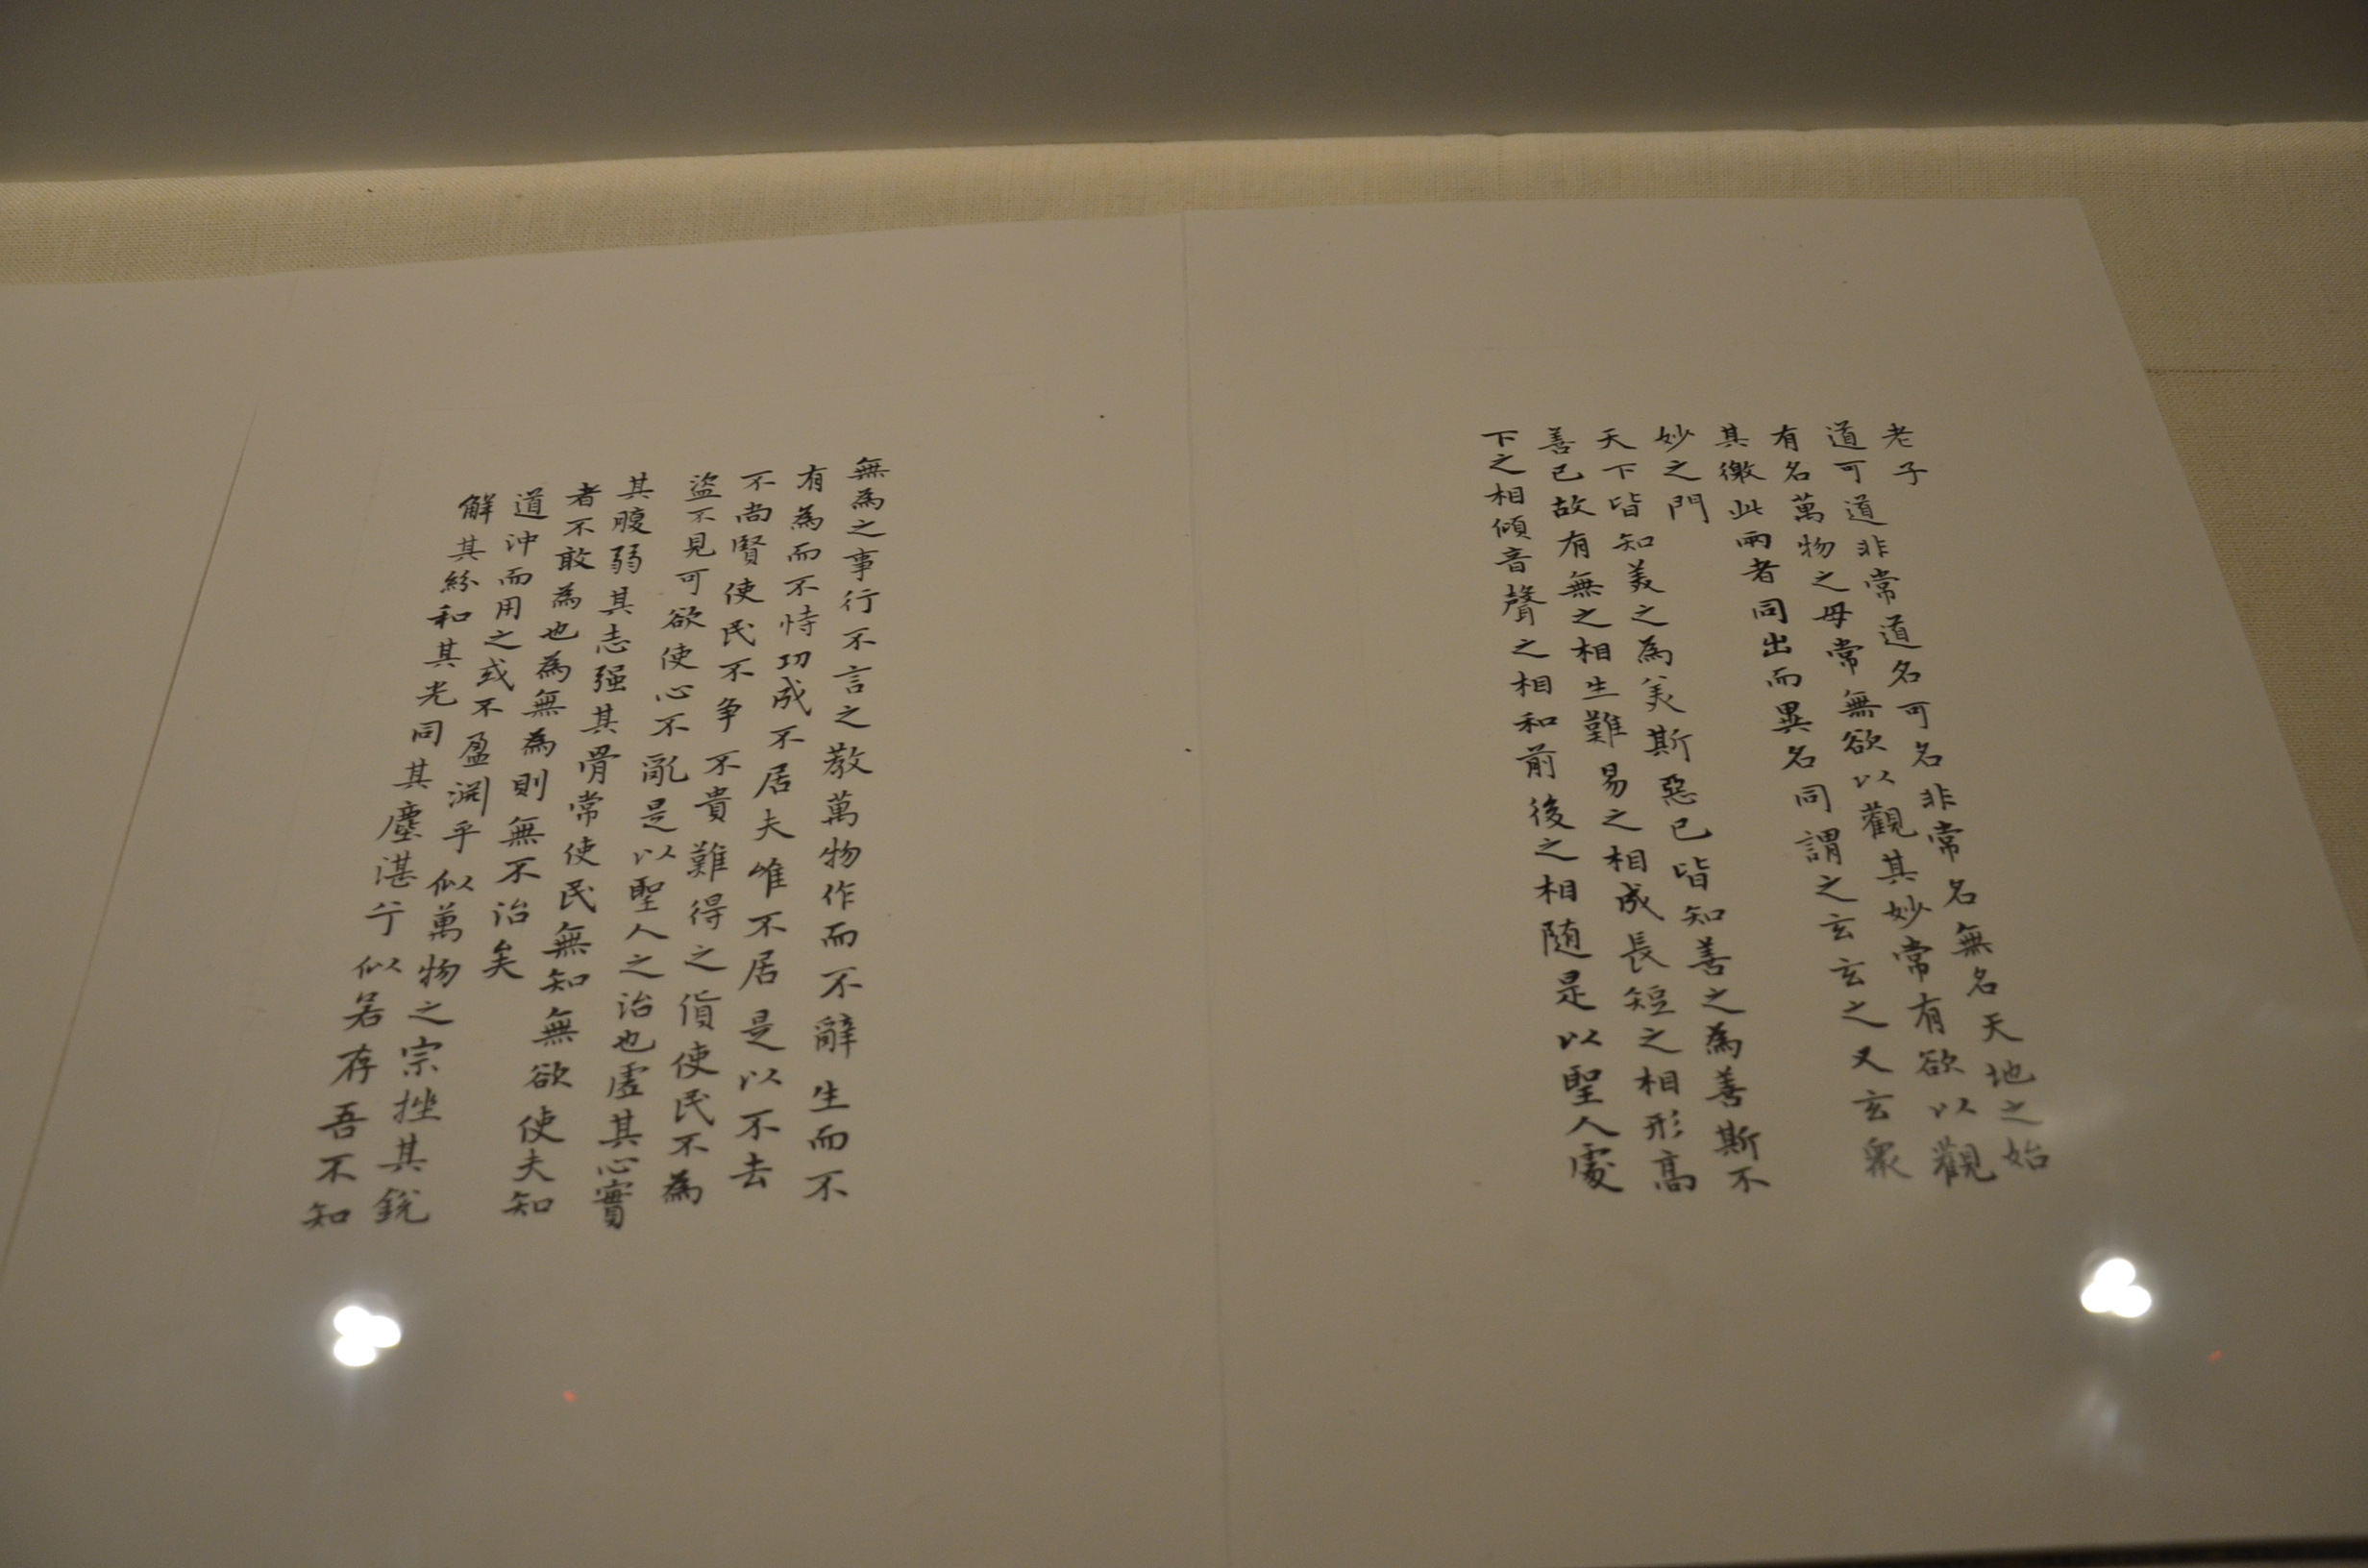 老子
道可道非常道名可名非常名無名天地之始
有名萬物之母常無欲以觀其妙常有欲以觀
其徼此兩者同出而異名同謂之玄玄之又玄衆
妙之門
天下皆知美之為美斯惡已皆知善之為善斯不
善已故有無之相生難易之相成長短之相形高
下之相傾音聲之相和前後之相随是以聖人處
無為之事行不言之教萬物作而不辭生而不
有為而不恃功成不居夫唯不居是以不去
不尚賢使民不争不貴難得之貨使民不為
盜不見可欲使心不亂是以聖人之治也虛其心實
其腹弱其志强其骨常使民無知無欲使夫知
者不敢為也為無為則無不治矣
道沖而用之或不盈淵乎似萬物之宗挫其銳
解其紛和其光同其塵湛兮似若存吾不知